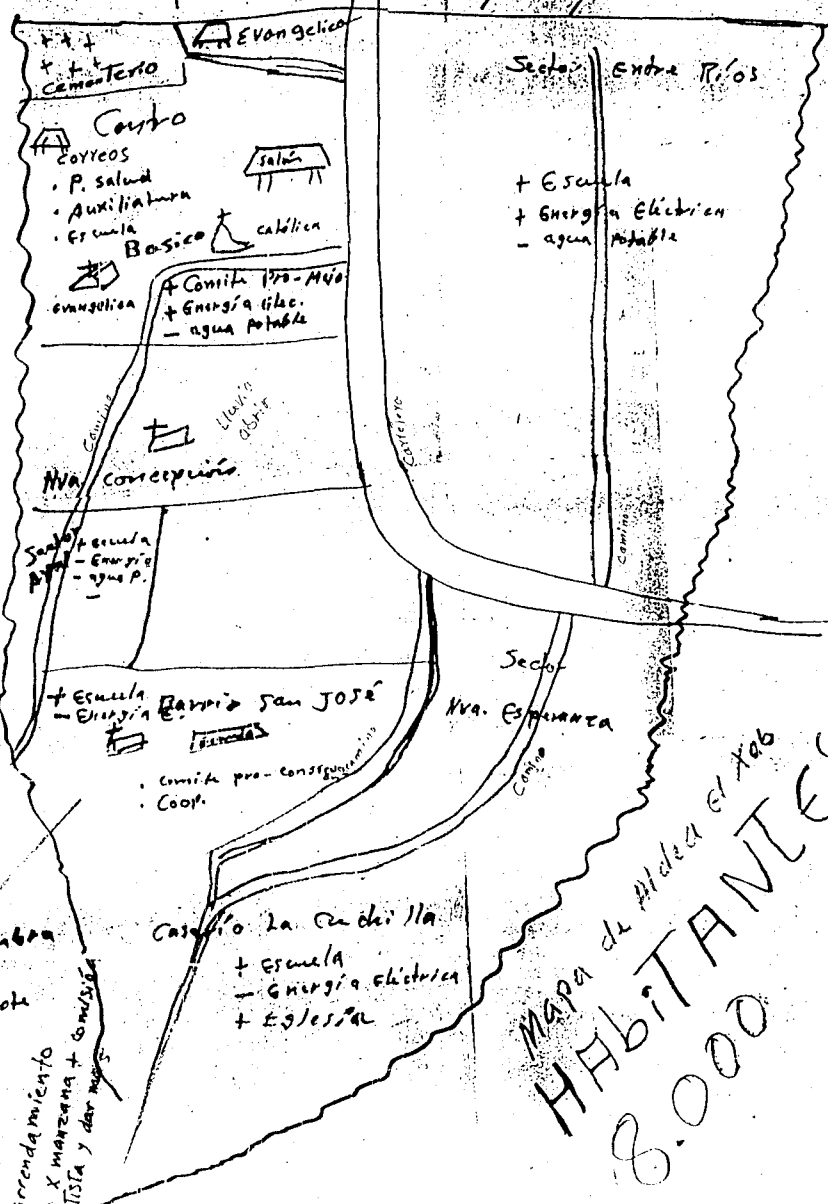 Evangelico
+ + +
+ + +
Cementerio
Sector Entre Ríos
Centro
correos
. P. salud
. Auxiliatura
. Escuela
Basico
salón
católica
evangelica
+ Comite Pro-Mejo
+ Energía Elec.
- agua potable
+ Escuela
+ Energía Eléctrica
- agua potable
Camino
Lluvia
abril
Nva. Concepción
Carretera
Camino
Sector
+ escuela
- Energía
- agua P.
-
+ Escuela
- Energía E.
Barrio San JOSÉ
tiendas
. comite pro-conseg. camino
. Coop.
Sector
Nva. Esperanza
Camino
Caserío La Cuchilla
+ Escuela
- Energía Eléctrica
+ Eglesia
Mapa de Aldea El Xab
HAbiTANTES
8.000
arrendamiento
x manzana + comisión
y dar mas